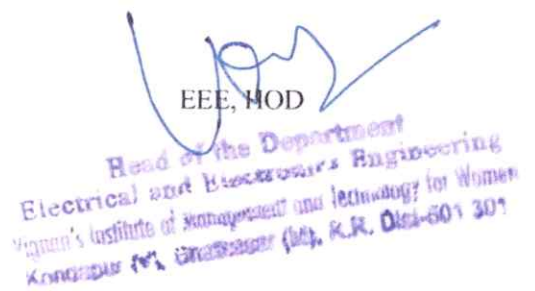 EEE, HOD
Head of the Department
Electrical and Electronics Engineering
Vignan's Institute of Management and Technology for Women
Kondapur (V), Ghatkesar (M), R.R. Dist-501 301